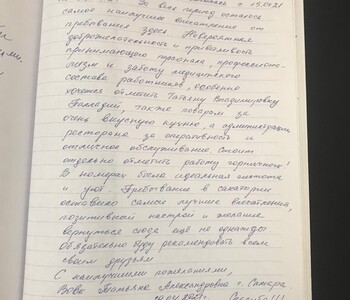 За весь период осталось
самое наилучшее впечатление от
пребывания здесь. Невероятная
доброжелательность и приветливость
принимающего персонала, профессиона-
лизм и заботу медицинского
состава работников, особенно
хочется отметить Татьяну Владимировну
также поварам за
очень вкусную кухню, а администрации
ресторана за оперативность и
отличное обслуживание. Стоит
отдельно отметить работу горничных!
В номерах была идеальная чистота
и уют. Пребывание в санатории
оставило самые лучшие впечатления,
позитивный настрой и желание
вернуться сюда ещё не однажды
обязательно буду рекомендовать всем
своим друзьям
С наилучшими пожеланиями,
Татьяна Александровна г. Самара